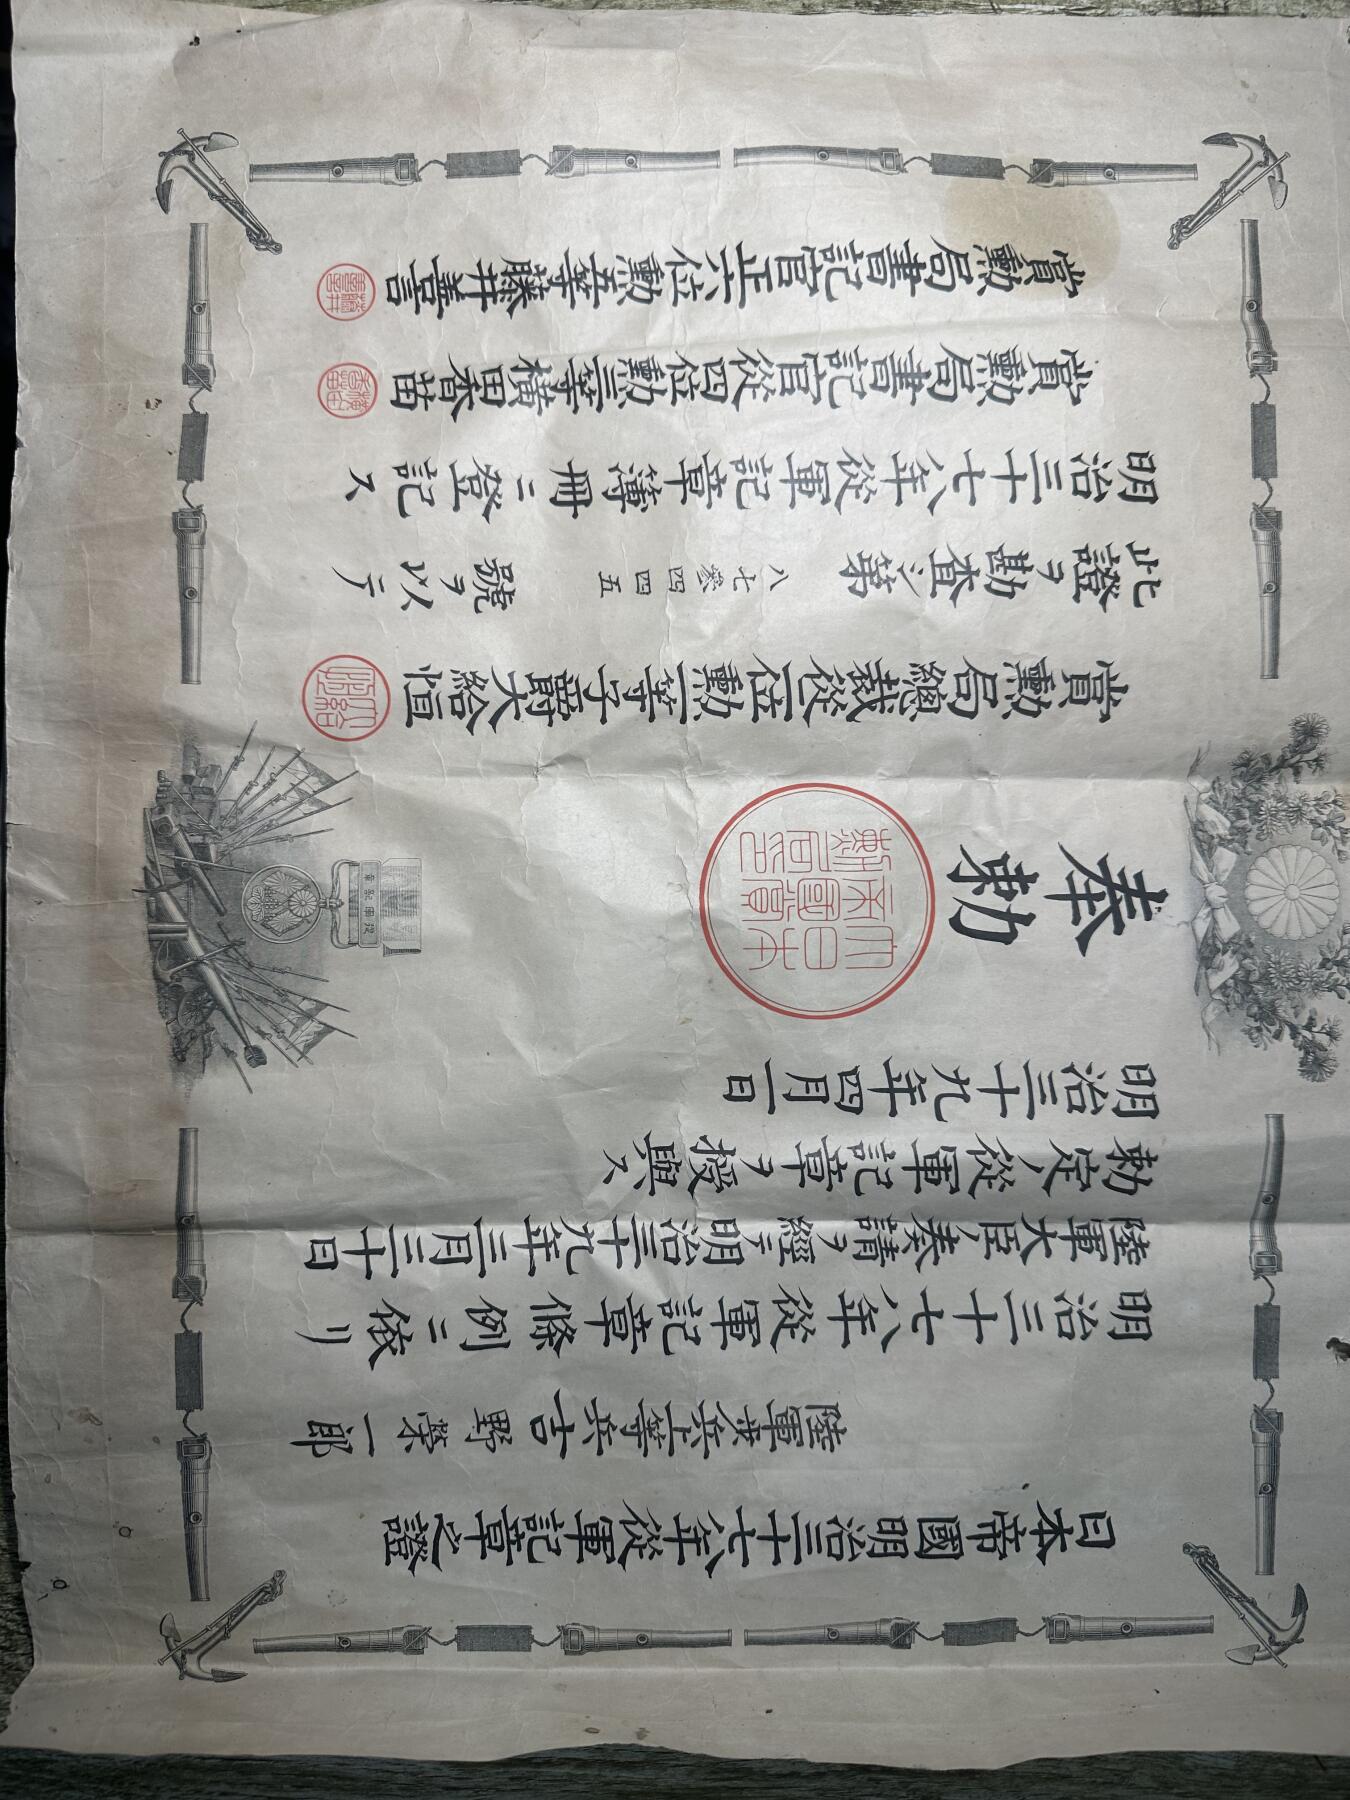 日本帝國明治三十七八年從軍記章之證
陸軍歩兵上等兵吉野榮一郎
明治三十七八年從軍記章條例ニ依リ
陸軍大臣ノ奏請ヲ經テ明治三十九年三月三十日
勅定ノ從軍記章ヲ授與ス
明治三十九年四月一日
奉勅
大日本
帝國賞
勳局印
從軍記章
賞勳局總裁從二位勳一等子爵大給恒
此證ヲ勘査シ第八七參四四五號ヲ以テ
明治三十七八年從軍記章簿冊ニ登記ス
賞勳局書記官從四位勳三等横田香苗
横田香苗
賞勳局書記官正六位勳五等藤井善言
藤井善言